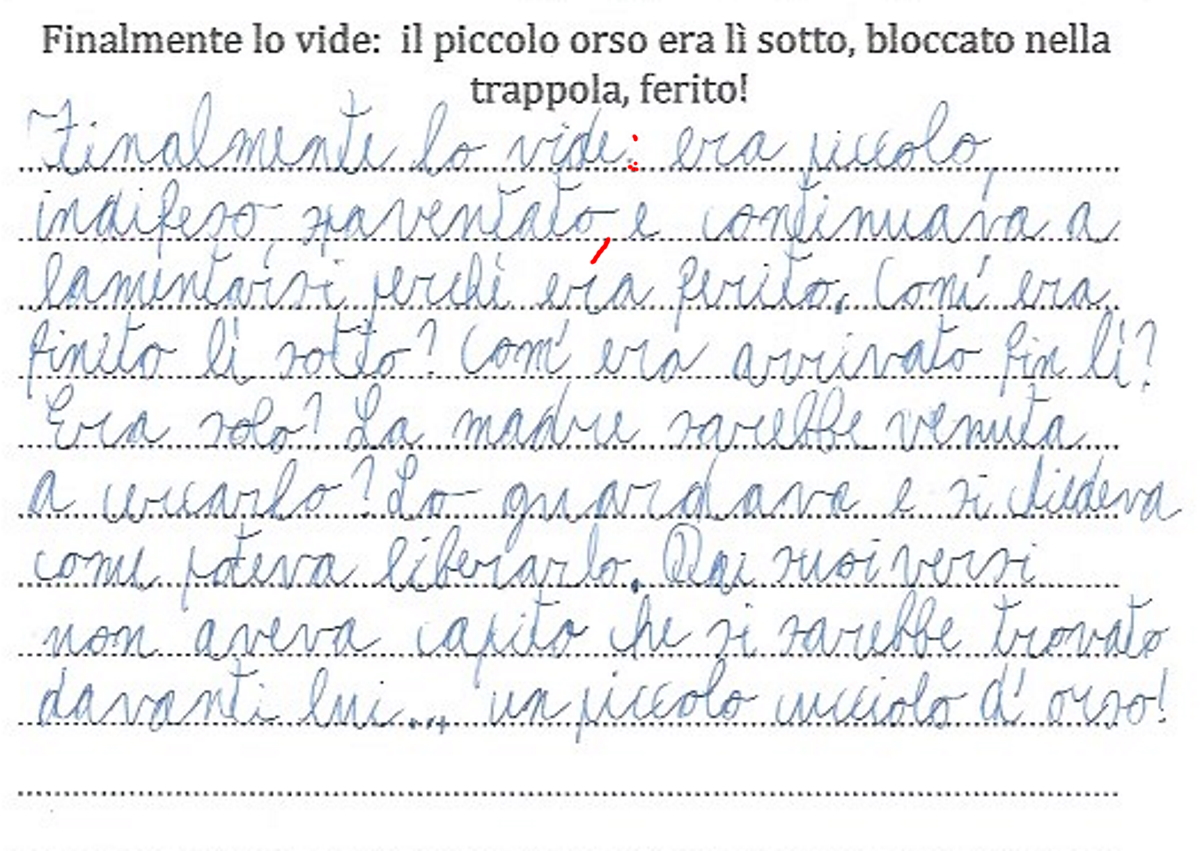 Finalmente lo vide:  il piccolo orso era lì sotto, bloccato nella
trappola, ferito!
Finalmente lo vide: era piccolo,
indifeso, spaventato e continuava a
lamentarsi perché era ferito. Com'era
finito lì sotto? Com'era arrivato fin lì?
Era solo? La madre sarebbe venuta
a cercarlo? Lo guardava e si chiedeva
come poteva liberarlo. Dai suoi versi
non aveva capito che si sarebbe trovato
davanti lui... un piccolo cucciolo d'orso!